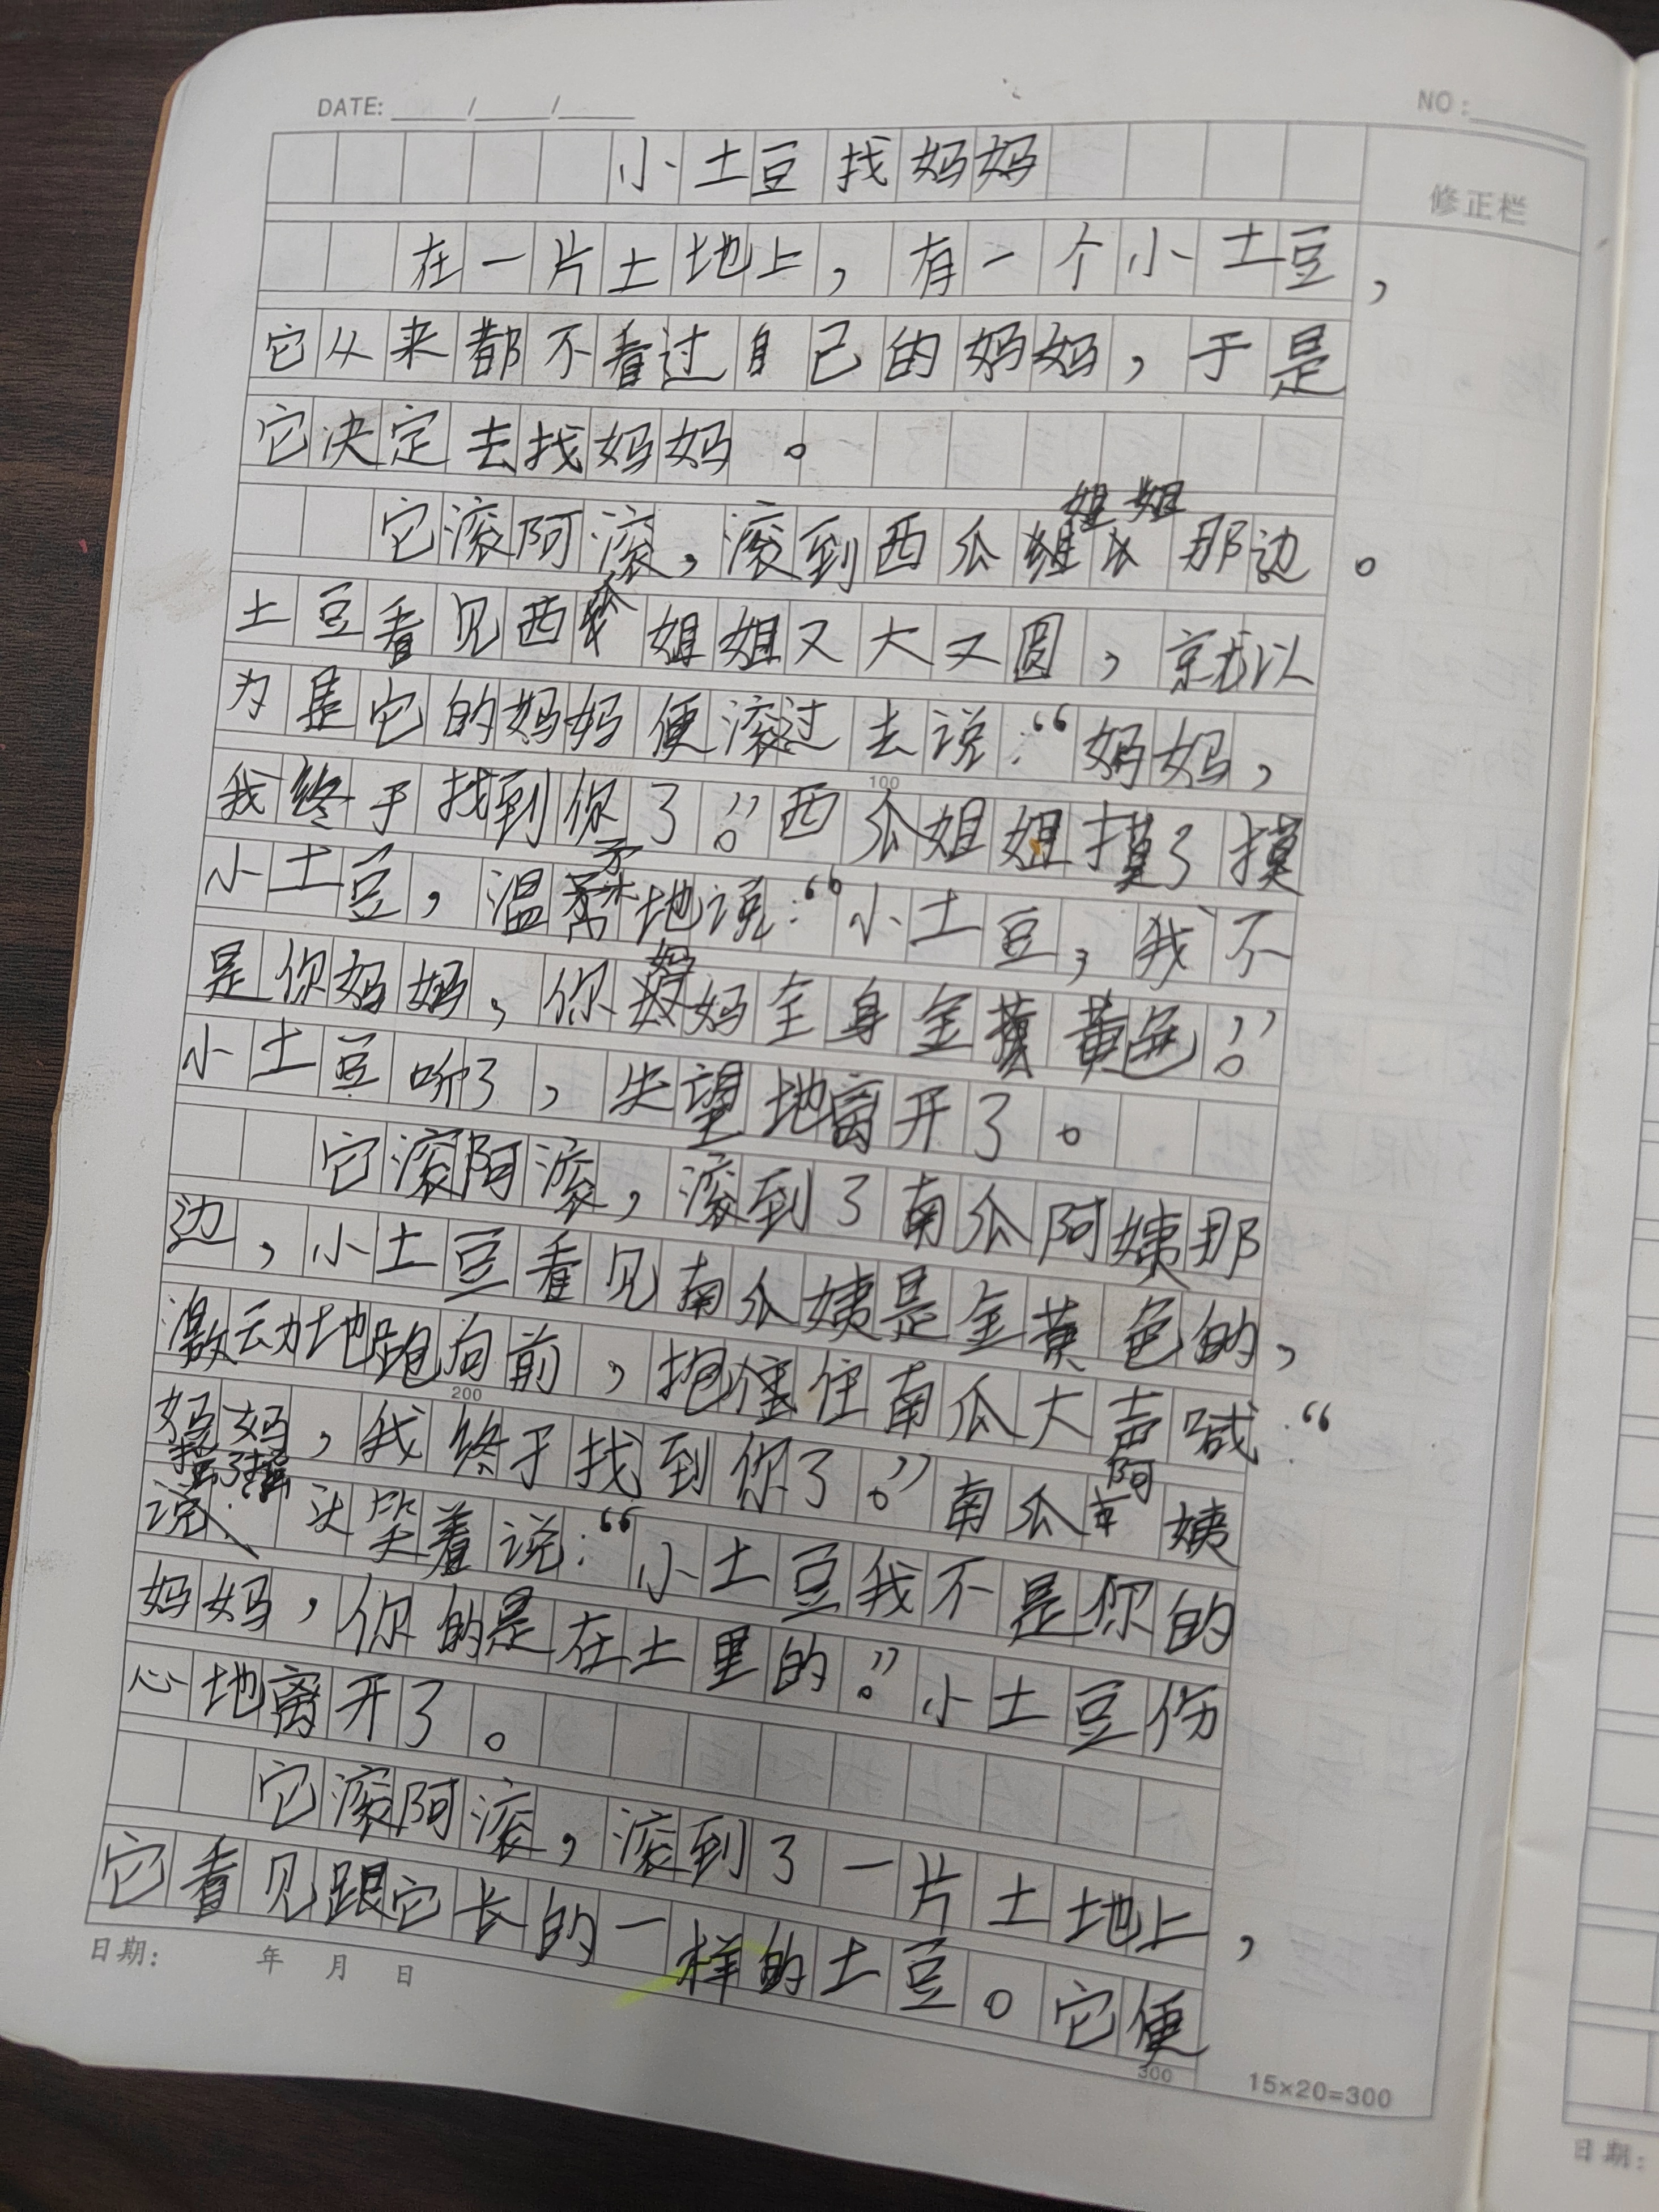 DATE: ____/____/____
NO:
修正栏
小土豆找妈妈
在一片土地上，有一个小土豆，
它从来都不看过自己的妈妈，于是
它决定去找妈妈。
它滚阿滚，滚到西瓜姐姐那边。
土豆看见西瓜姐姐又大又圆，就以
为是它的妈妈便滚过去说：“妈妈，
我终于找到你了。”西瓜姐姐摸了摸
小土豆，温柔地说：“小土豆，我不
是你妈妈，你妈妈全身金黄色。”
小土豆听了，失望地离开了。
它滚阿滚，滚到了南瓜阿姨那
边，小土豆看见南瓜姨是金黄色的，
激动地跑向前，抱住南瓜大声喊：“
妈妈，我终于找到你了。”南瓜阿姨
摇了摇头笑着说：“小土豆我不是你的
妈妈，你的是在土里的。”小土豆伤
心地离开了。
它滚阿滚，滚到了一片土地上，
它看见跟它长的一样的土豆。它便
100
200
300
日期： 年 月 日
15×20=300
日期：